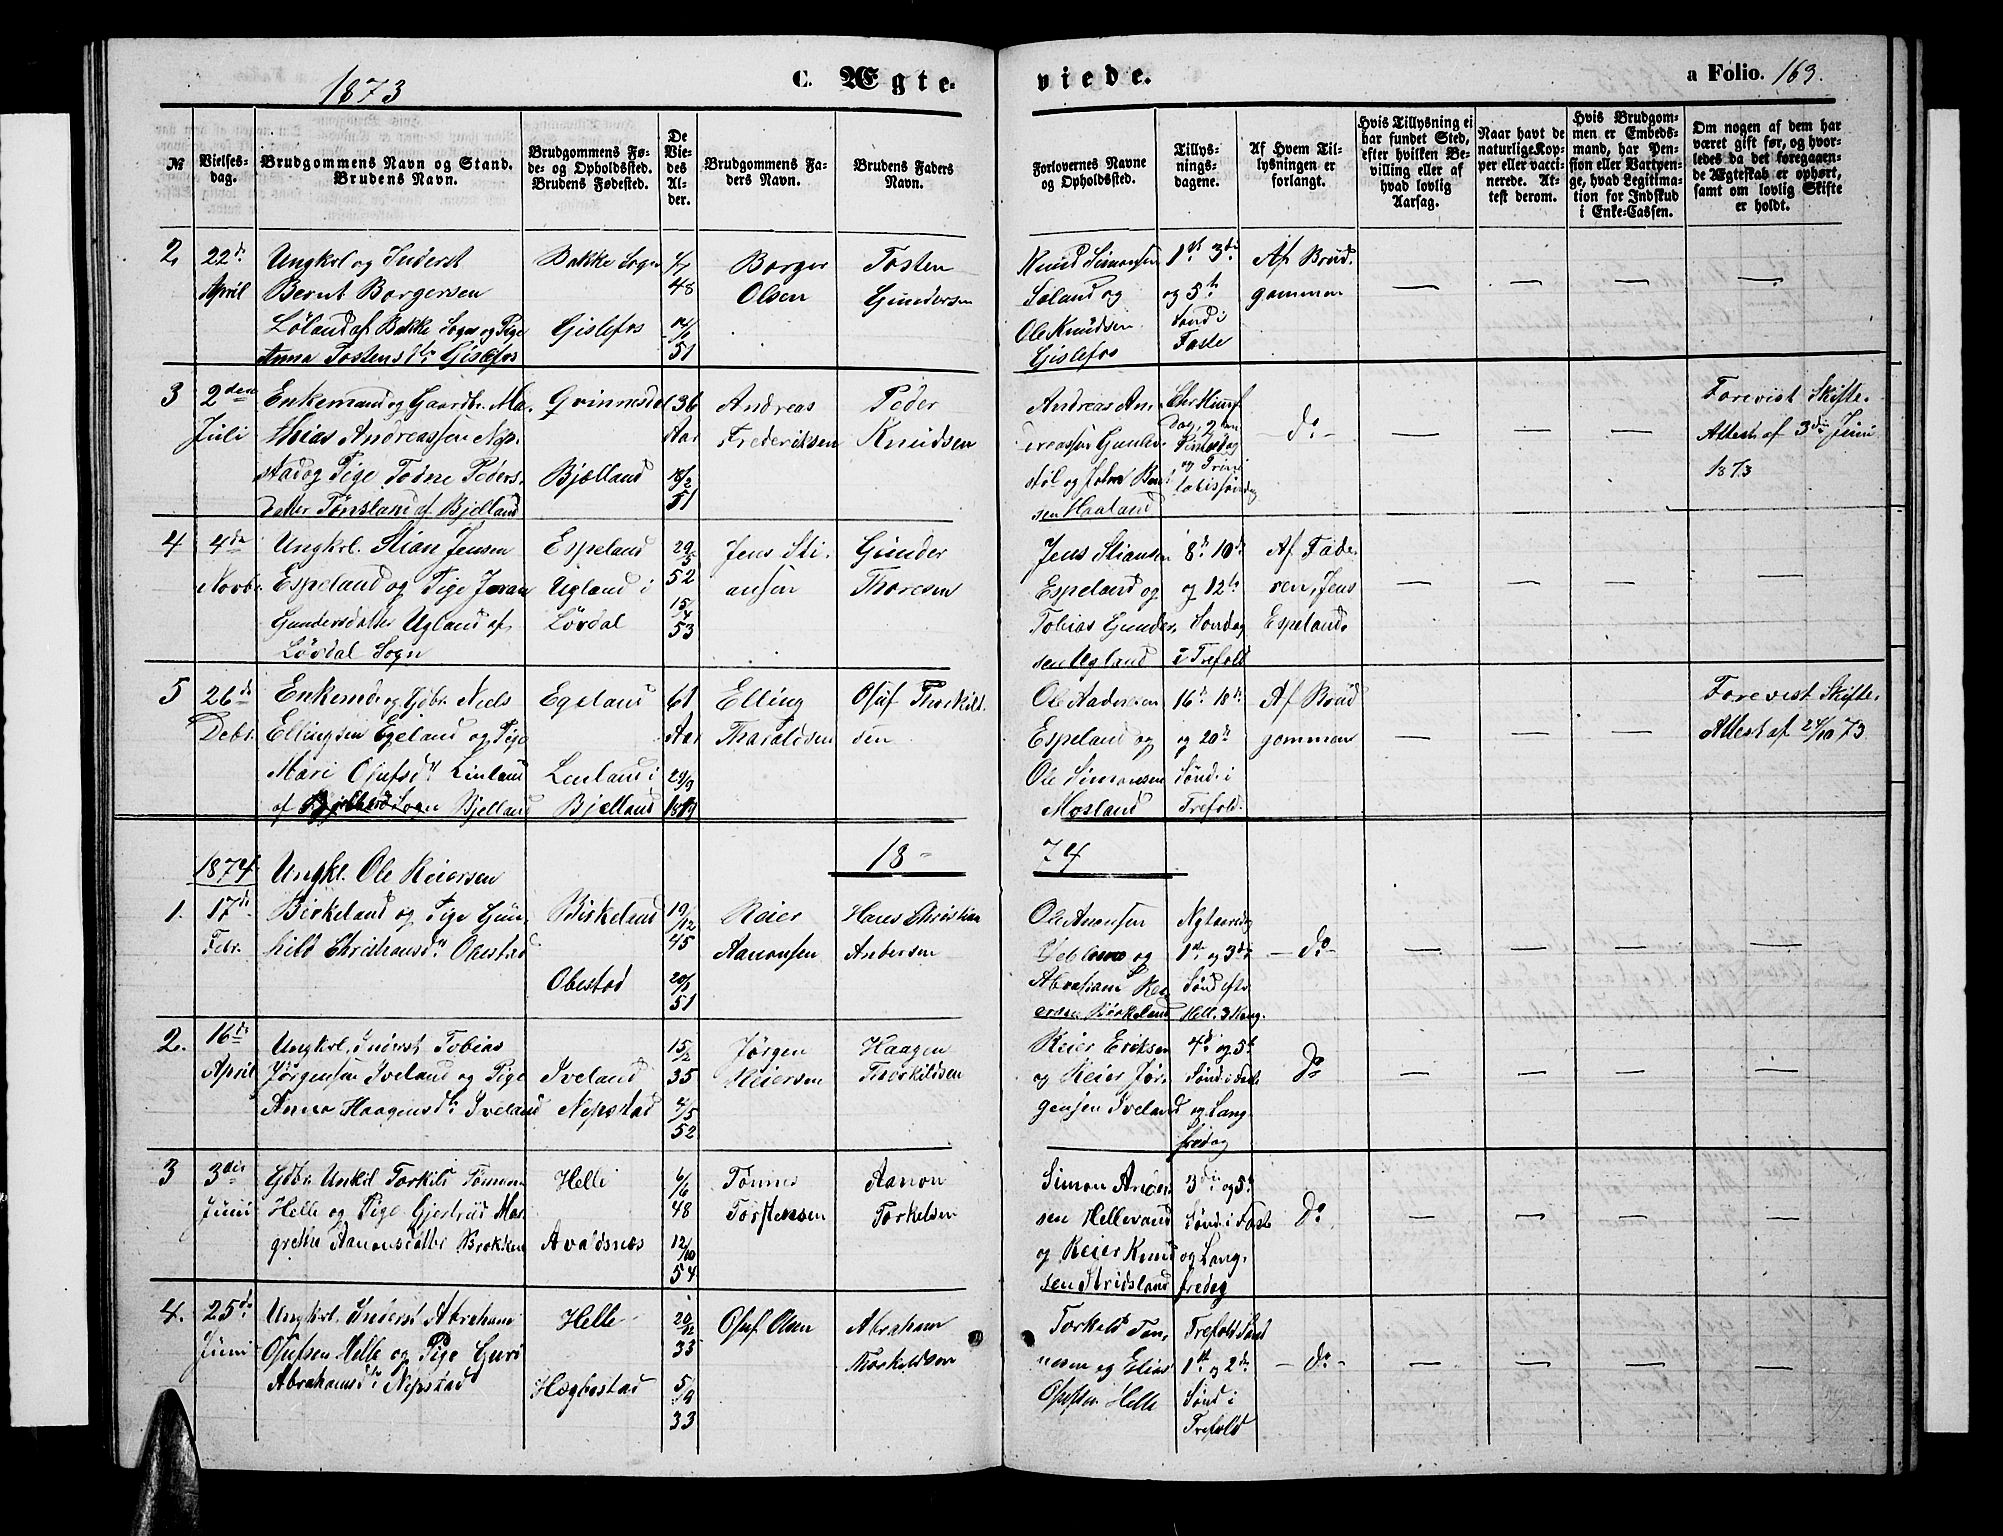 1873
C. Ægte-
viede.
a Folio. 163.
№
Vielses-
dag.
Brudgommens Navn og Stand.
Brudens Navn.
Brudgommens Fø-
de- og Opholdssted.
Brudens Fødested.
De
Vie-
des
Al-
der.
Brudgommens Fa-
ders Navn.
Brudens Faders
Navn.
Forlovernes Navne
og Opholdsted.
Tillys-
nings-
dagene.
Af Hvem Til-
lysningen er
forlangt.
Hvis Tillysning ei
har fundet Sted,
efter hvilken Be-
villing eller af
hvad lovlig
Aarsag.
Naar havt de
naturlige Kop-
per eller vacci-
nerede. At-
test derom.
Hvis Brudgom-
men er Embeds-
mand, har Pen-
sion eller Vartpen-
ge, hvad Legitima-
tion for Indskud
i Enke-Cassen.
Om nogen af dem har
været gift før, og hvor-
ledes da det foregaaen-
de Ægteskab er ophørt,
samt om lovlig Skifte
er holdt.
2, 22de April
Ungkrl og Inderst
Bernt Borgersen
Løland af Bakke Sogn og Pige
Anna Tostensdtr Gislefos
Bakke Sogn
Gislefos
48
51
Borger
Olsen
Tosten
Gundersen
Knud Simonsen
Soland og
Ole Knudsen
Gislefos
1st 3die
og 5te
Sønd i
Faste
Af Brud-
gommen
3 2den Juli
Enkemand og Gaardbr. Ma-
thias Andreassen Nep-
stad og Pige Todne Peders-
datter Tønsland af Bjelland
Grinnesdal
Bjelland
36
Aar
18/2
51
Andreas
Frederiksen
Peder
Knudsen
Andreas An-
dreassen
sen Haaland
Dag, 2den
Pintsedag
og Trini-
tatissøndag
do
Forevist Skifte-
Attest af 3die Juni
1873
4 4de Novbr.
Ungkrl. Stian Jensen
Espeland og Pige Joran
Gundersdatter Ugland af
Løvdal Sogn
Espeland
Ugland i
Løvdal
29/5
52
15/4
53
Jens Sti-
ansen
Gunder
Thoresen
Jens Stiansen
Espeland og
Tobias Gunder-
sen Ugland
8de 10de
og 12te
Søndag
i Trefold
Af Fade-
ren, Jens
Espeland.
5 26de Debr.
Enkemd og Gdbr. Niels
Ellingsen Egeland og Pige
Mari Olufsdtr Linland
af Bjelland
Egeland
Linland i
Bjelland
61
Aar
29/9
Elling
Tharaldsen
Oluf Thorkild-
sen
Ole Aadnesen
Espeland og
Ole Simonsen
Mosland
16de 18de
og 20de
Sønd. i
Trefold.
Af Brud
gommen
Forevist Skifte-
Attest af 24/10 73.
18-
74
1874
1. 17de Febr.
Ungkl. Ole Reiersen
Birkeland og Pige Gun-
hild Christiansdtr Obestad
Birkeland
Obestad
19/12
45
51
Reier
Aanonsen
Hans Christian
Andersen
Ole Aanonsen
og
Abraham Rei-
ersen Birkeland
Nytaarsdag
1ste og 3die
Sønd efter
Hell. 3 Kong.
do
2. 16de April
Ungkrl. Inderst Tobias
Jørgensen Iveland og Pige
Anna Haagensdtr Iveland
Iveland
Nepstad
15/2
35
4/5
52
Jørgen
Reiersen
Haagen
Thorkildsen
Reier Eriksen
og Reier Jør-
gensen Iveland
4de og 5te
Sønd. i Faste
og Lang
fredag
do
3 3die Juni
Gdbr. Unkrl Torkild Tønnes
Helle og Pige Gjertrud Mar-
grethe Aanonsdatter Brokken
Helle
Avaldsnes
6/6
48
12/10
54
Tønnes
Torstensen
Aanon
Torkelsen
Simon Ander-
sen Hellevand
og Reier Knud
sen Stridsland
3die og 5te
Sønd. i Faste
og Lang-
fredag
do
4. 25de Juni
Ungkrl. Inderst Abraham
Olufsen Helle og Pige Guri
Abrahamsdtr Nepstad
Helle
Hægbostad
20/12
33
5/9
33
Oluf Olsen
Abraham
Thorkildsen
Torkild Tøn-
nesen og Elias
Olufsen Helle
Trefold Sønd
1ste og 2de
Sønd i
Trefold
do